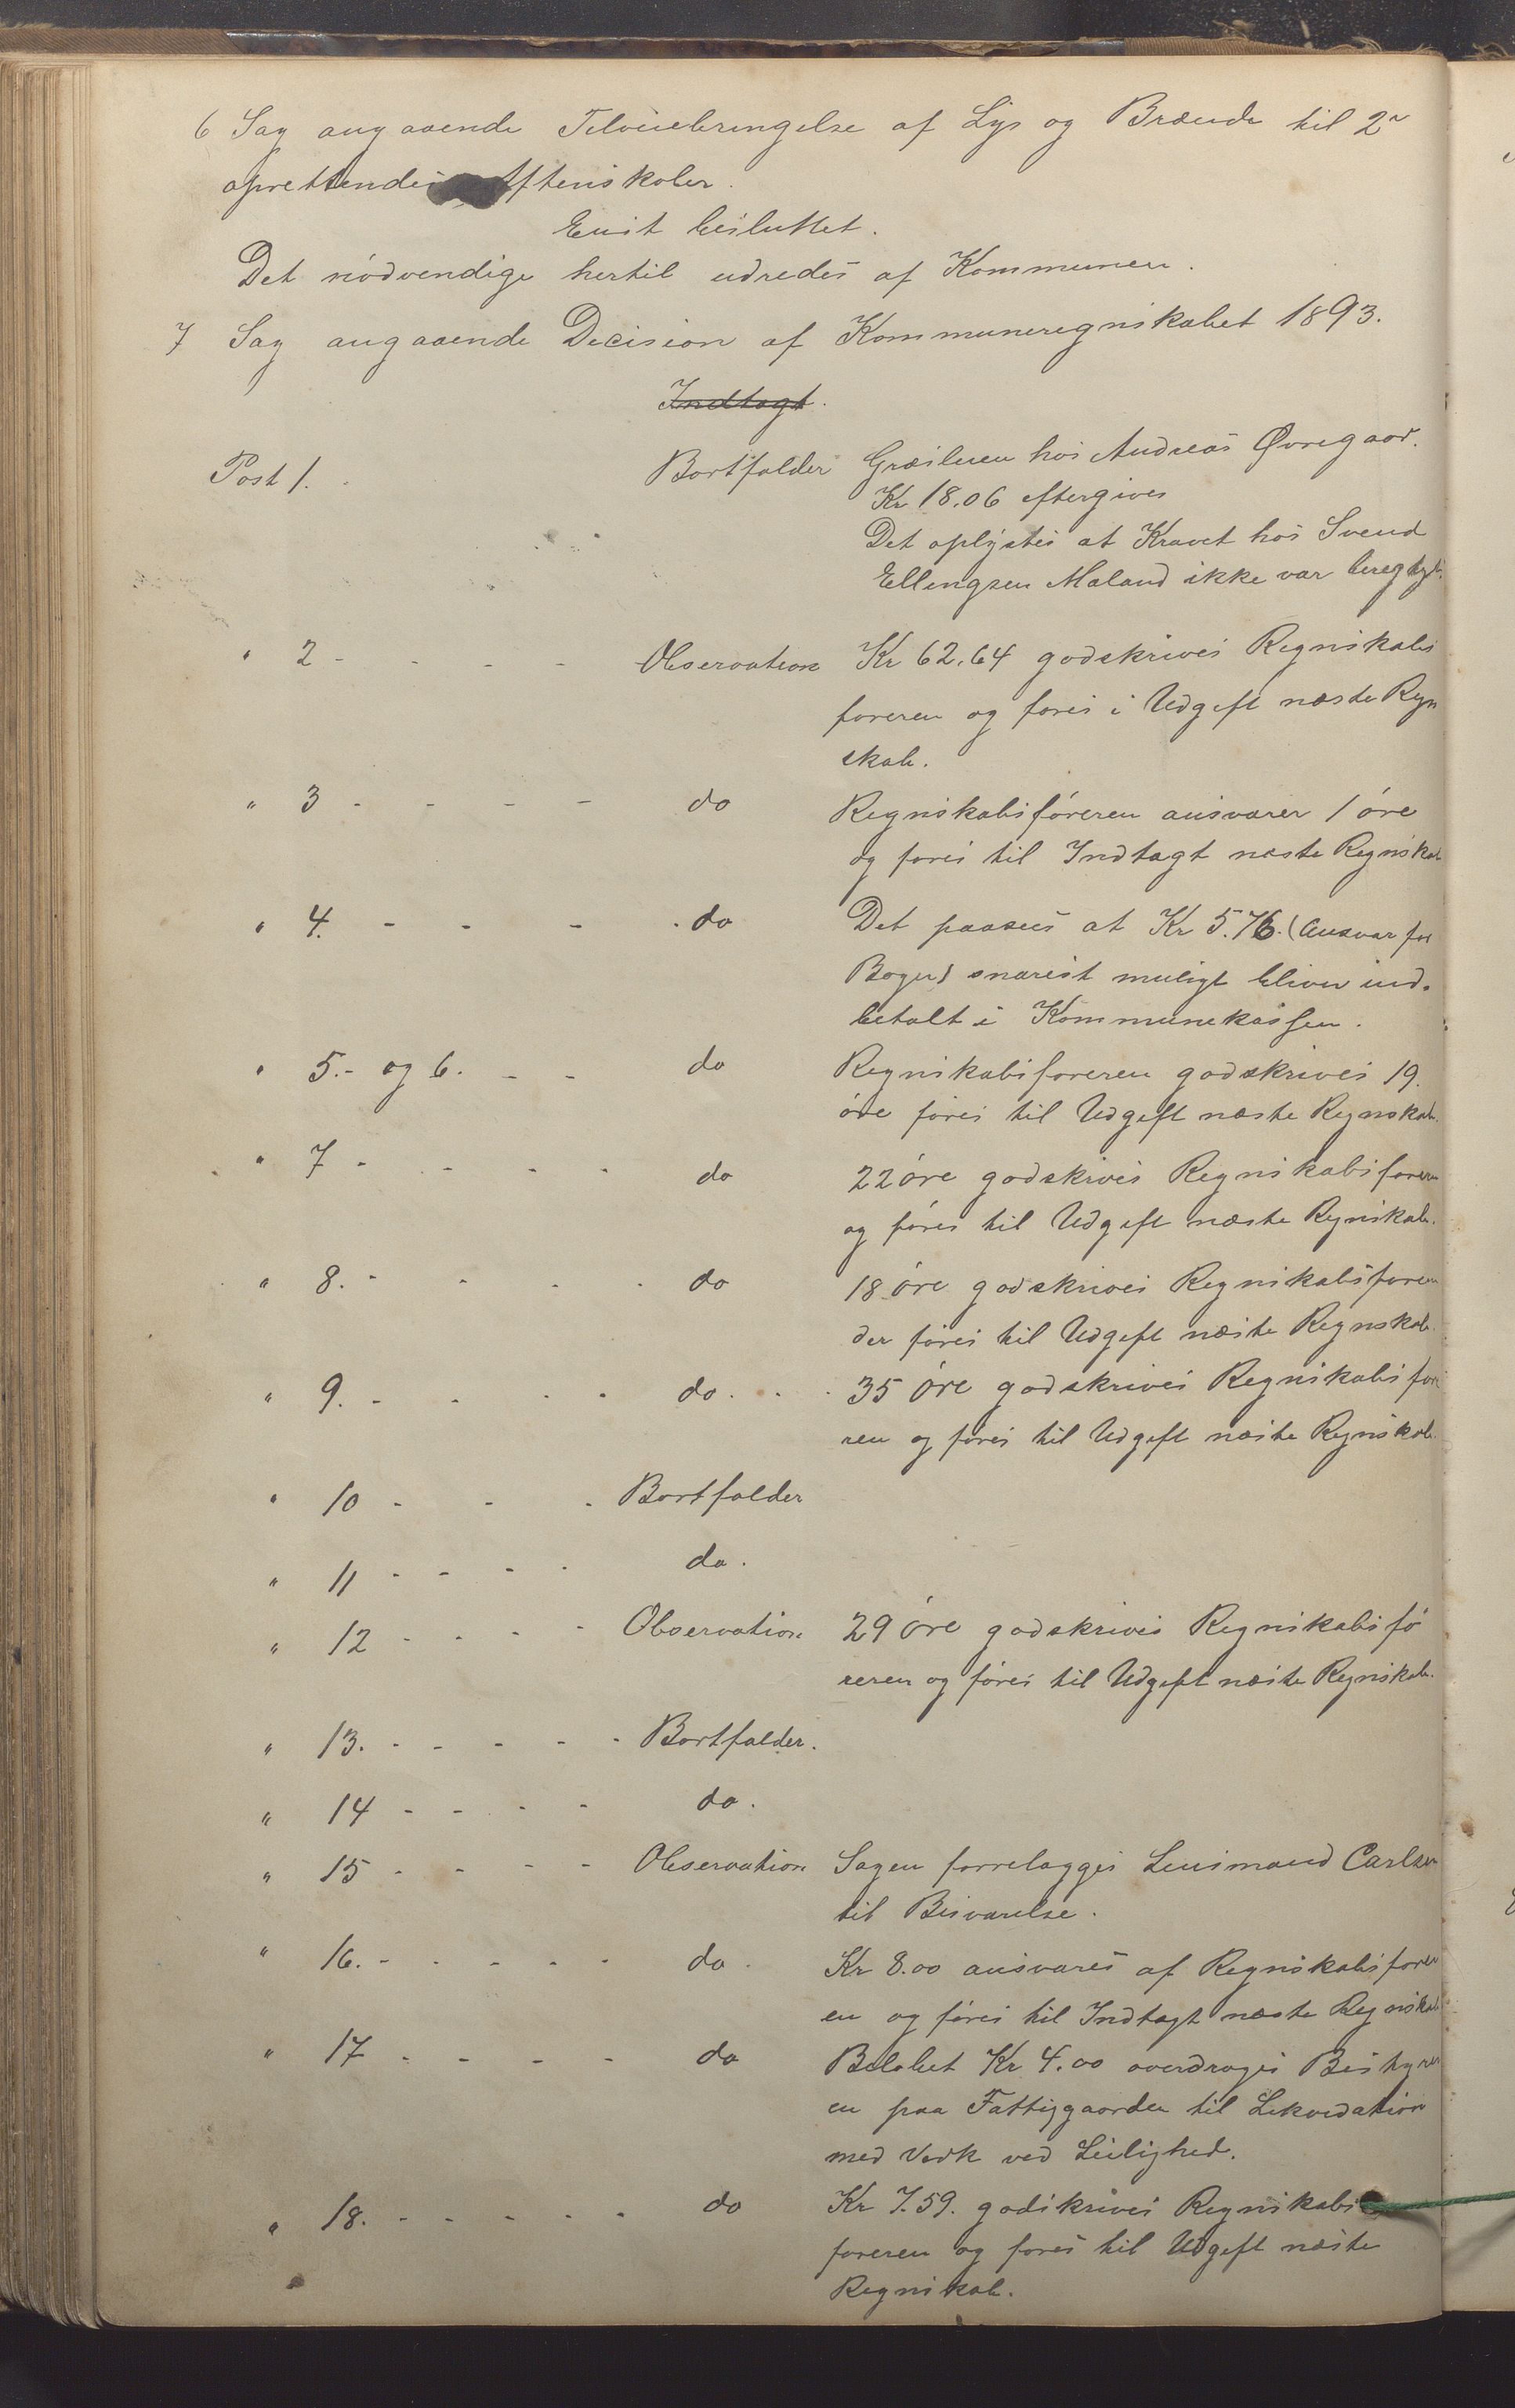 6 Sag angaaende Tilveiebringelse af Lys og Brænde til 2de
oprettendes Aftenskoler.
Enst besluttet.
Det nødvendige hertil udredes af Kommunen.
7 Sag angaaende Decision af Kommuneregnskabet 1893.
Indtægt.
Post 1. Bortfalder Græsleien hos Andreas Øvregaar.
Kr 18.06 eftergives
Det oplystes at Kravet hos Svend
Ellingsen Maland ikke var beregtyt.
" 2 - - - - Observation Kr 62.64 godskrives Regnskabs
føreren og føres i Udgift næste Regn
skab.
" 3 - - - - do Regnskabsføreren ansvarer 1 øre
og føres til Indtægt næste Regnskab
" 4. - - - - do Det paasees at Kr 5.76. (Ansvar for
Bøger) snarest muligt bliver ind-
betalt i Kommunekassen.
" 5.- og 6. - - do Regnskabsføreren godskrives 19.
øre føres til Udgift næste Regnskab.
" 7 - - - - do 22 øre godskrives Regnskabsføreren
og føres til Udgift næste Regnskab.
" 8. - - - - do 18 øre godskrives Regnskabsføreren
der føres til Udgift næste Regnskab.
" 9. - - - - do. 35 øre godskrives Regnskabsføre
ren og føres til Udgift næste Regnskab.
" 10 - - - Bortfalder
" 11 - - - - do.
" 12 - - - - Observation 29 øre godskrives Regnskabsfø
reren og føres til Udgift næste Regnskab.
" 13. - - - - - Bortfalder.
" 14 - - - - do.
" 15 - - - - Observation Sagen forrelægges Lensmand Carlsen
til Besvarelse.
" 16. - - - - - do. Kr 8.00 ansvares af Regnskabsfører
en og føres til Indtægt næste Regnskab
" 17 - - - - do Beløbet Kr 4.00 overdrages Bestyrer
en paa Fattiggaarden til Lekvedation
med Vedk ved Leilighed.
" 18. - - - - - do Kr 7.59. godskrives Regnskabs
føreren og føres til Udgift næste
Regnskab.